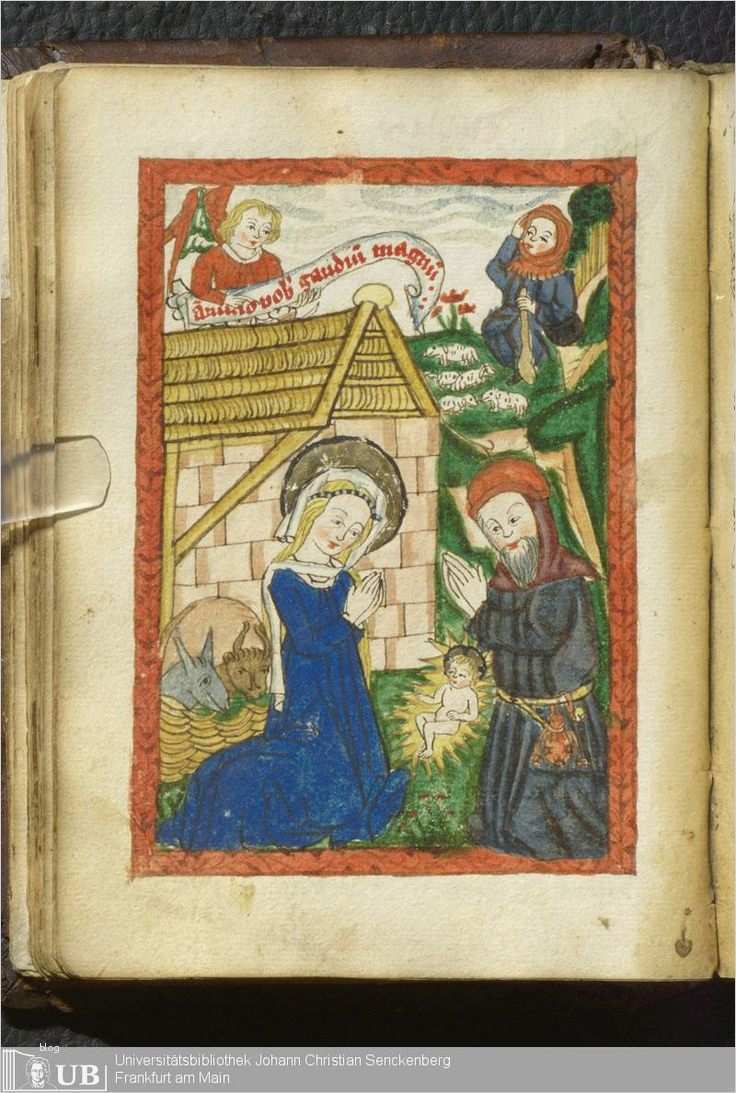 gaudiu magnu
blog
UB
Universitätsbibliothek Johann Christian Senckenberg
Frankfurt am Main